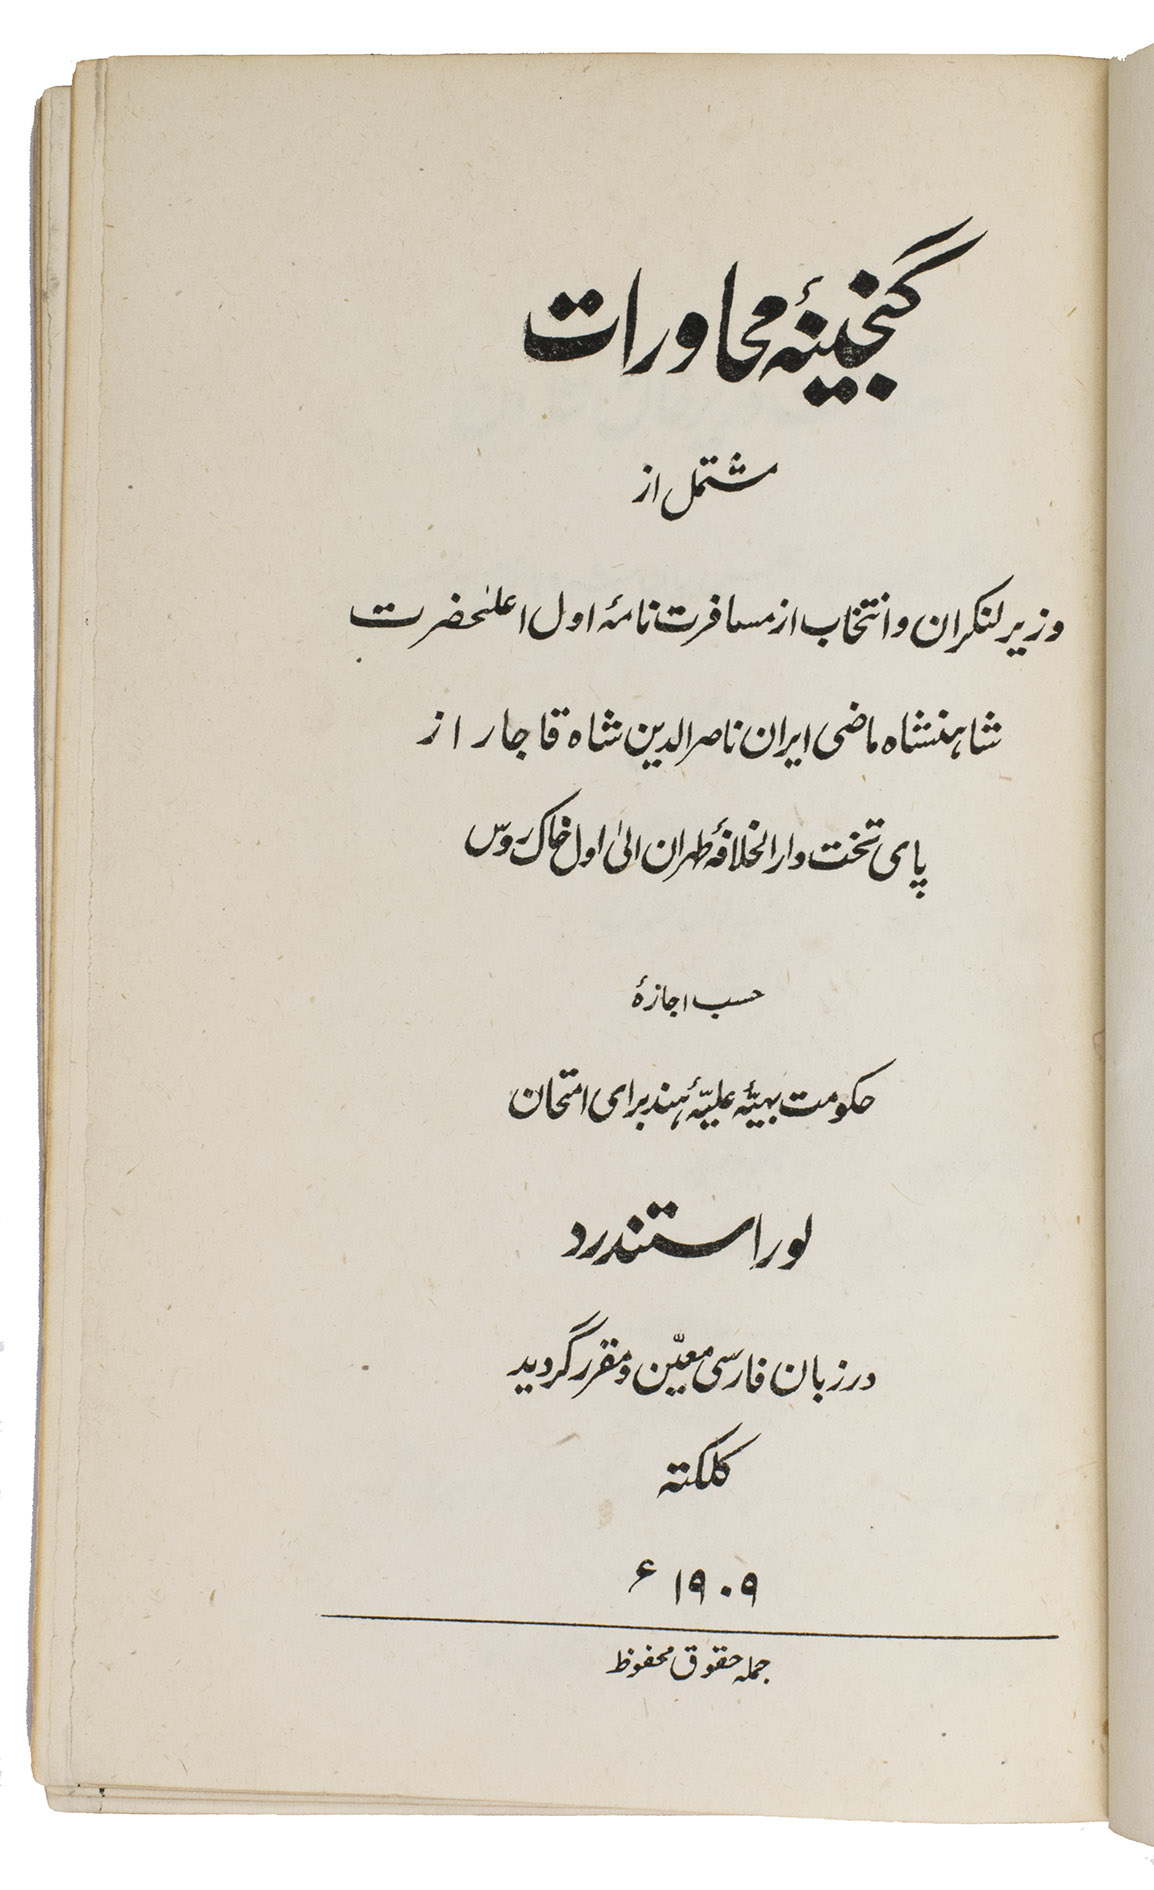 گنجینۂ محاورات
مشتمل از
وزیر لنکران و انتخاب از مسافرت نامۂ اول اعلیٰحضرت
شاہنشاہ ماضی ایران ناصر الدین شاہ قاجار از
پای تخت دار الخلافۂ طہران الیٰ اول خاک روس
حسب اجازۂ
حکومت بہیّۂ علیّۂ ہند برای امتحان
لور استندرد
در زبان فارسی معیّن و مقرر گردید
کلکتہ
۱۹۰۹ ء
جملہ حقوق محفوظ